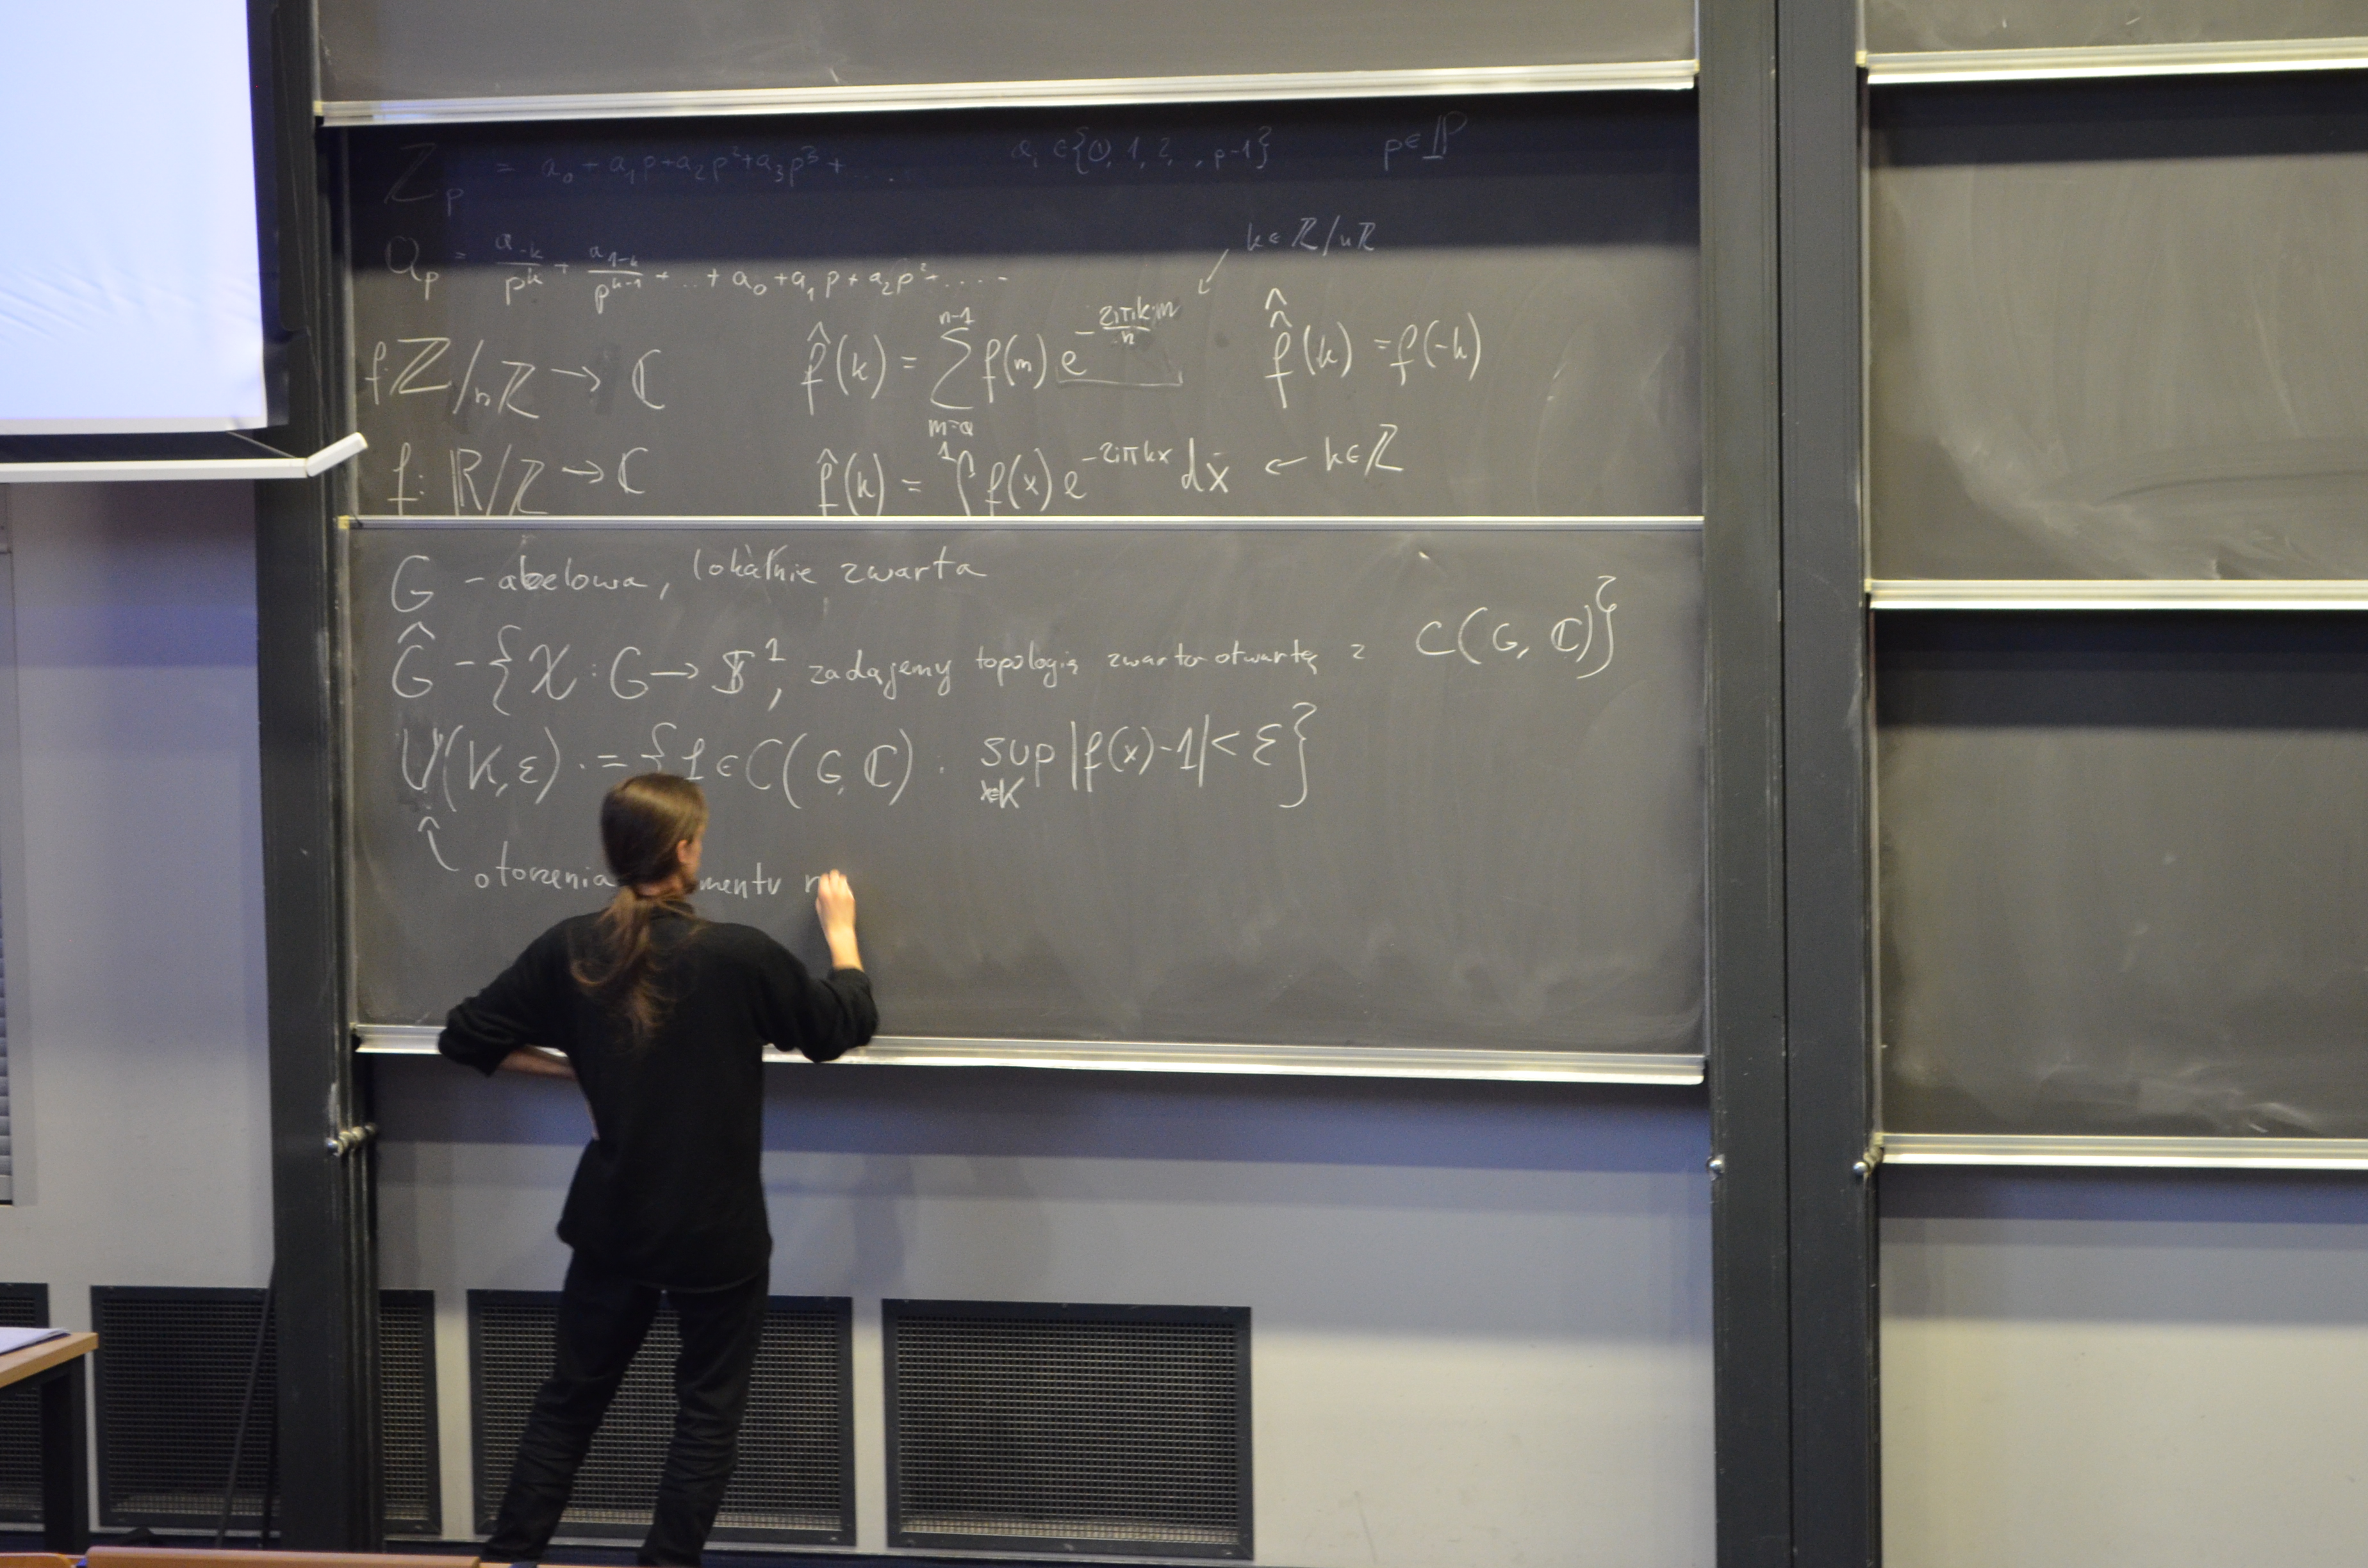 ℤ_p = a_0 + a_1 p + a_2 p^2 + a_3 p^3 + ... a_i ∈ {0, 1, 2, ., p-1} p ∈ ℙ
k ∈ ℤ/nℤ
Q_p = a_{-k}/p^k + a_{1-k}/p^{k-1} + ... + a_0 + a_1 p + a_2 p^2 + ....
f: ℤ/nℤ → ℂ f̂(k) = ∑_{m=0}^{n-1} f(m) e^{-2iπkm/n} f̂̂(k) = f(-k)
f: ℝ/ℤ → ℂ f̂(k) = ∫^1 f(x) e^{-2iπkx} dx ← k ∈ ℤ
G - abelowa, lokalnie zwarta
Ĝ - {χ : G → 𝕊^1, zadajemy topologię zwarto otwartą z C(G, ℂ)}
U(K, ε) := {f ∈ C(G, ℂ) : sup_{x∈K} |f(x)-1| < ε}
otoczenia mentu